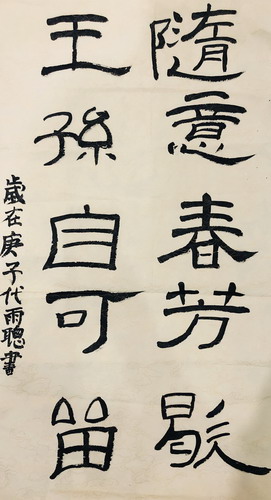 隨意春芳歇
王孫自可畱
歲在庚子代雨聰書